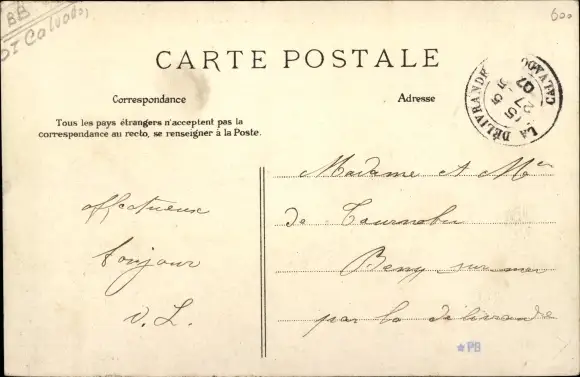 BB
Calvados
600
CARTE POSTALE
Correspondance
Adresse
Tous les pays étrangers n'acceptent pas la
correspondance au recto, se renseigner à la Poste.
LA DÉLIVRANDE CALVADOS
27
07
affectueux
bonjour
V. L.
Madame et Mr
de Tournebu
Beny sur mer
par la délivrande
*PB